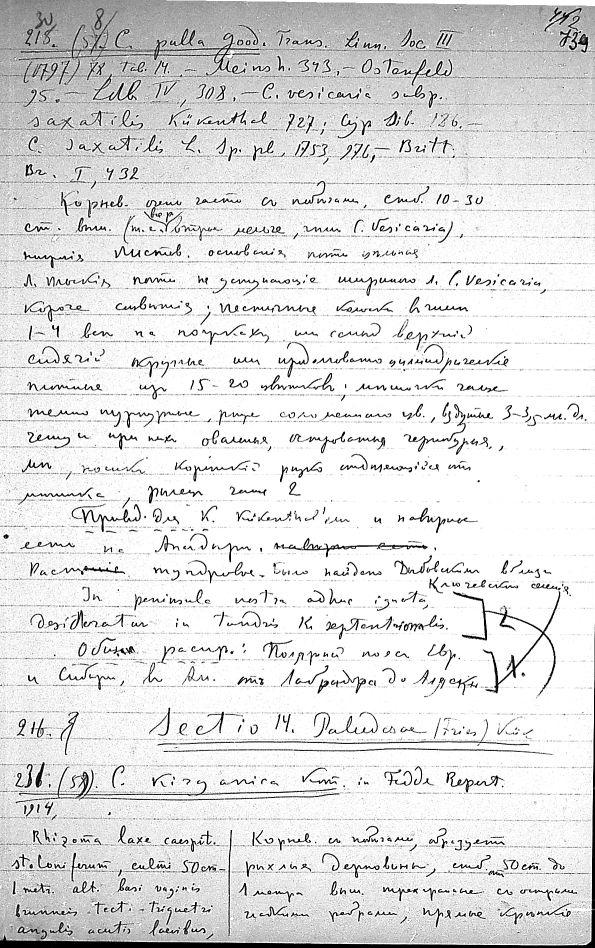 30 8/ 442
218. (57) C. pulla Good. Trans. Linn. Soc. III 739
(1797) 78, tab. 14. – Meinsh. 343, – Ostenfeld
95. – Ldb. IV, 308, – C. vesicaria subsp.
saxatilis Kükenthal 727; Sib. 186. –
C. saxatilis L. Sp. pl. 1753, 976, – Britt.
Br. I, 432
Корнев. очень часто с побегами, стеб. 10–30
ст. выш. (т.е. втрое меньше, чем C. Vesicaria),
Листов. основания почти цельные
Л. плоские почти не уступающие шириною л. C. Vesicaria,
короче соцветия; пестичные колоски в числе
1–4 все на ножках или самый верхний
сидячий круглые или продолговато цилиндрические
плотные из 15–20 цветков; мешочки чаще
темно пурпурные, реже соломенного цв., вздутые 3–3,5 мм. дл.
чешуи при них овальные, островатые чернобурые,
носик короткий резко отделяющийся от
мешочка, рылец чаще 2
Привод. для К. Kükenthal'ем и наверное
есть на Анадыре, наверно есть.
Раст. тундровое. Было найдено Дыбовским вблизи
Ключевского селения.
In peninsula nostra adhuc ignota,
desideratur in tundris K. septentrionalis. 2
Общ. распр.: Полярный пояс Евр.
и Сибири, в Ам. от Лабрадора до Аляски 1.
216. Sectio 14. Paludosae (Fries) Kük
231. (58) C. Kirganica Kom. in Fedde Repert.
1914,
Rhizoma laxe caespit.
stoloniferum, culmi 50 cm –
1 metr. alt. basi vaginis
brunneis tecti triquetri
angulis acutis laevibus,
Корнев. с побегами, образует
рыхлые дерновины, стеб. от 50 ст. до
1 метра выш. трехгранные с острыми
гладкими ребрами, прямые крепкие